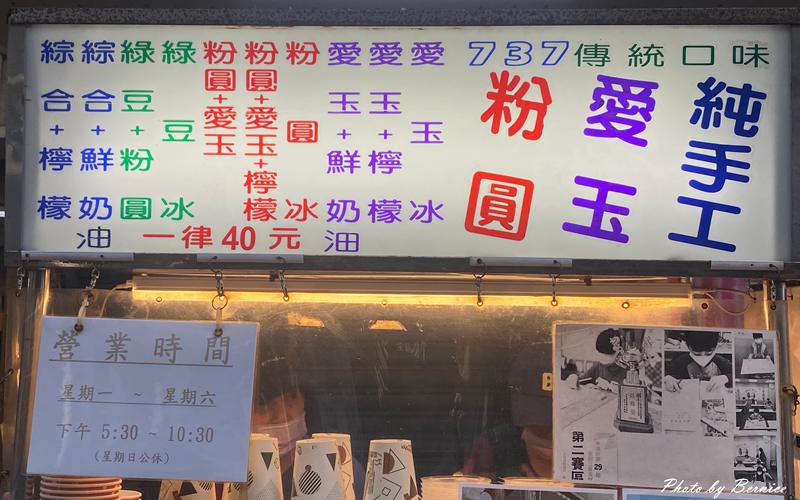 737傳統口味
純手工
愛玉
粉圓
愛玉冰
愛玉+檸檬
愛玉+鮮奶油
粉圓冰
粉圓+愛玉+檸檬
粉圓+愛玉
綠豆冰
綠豆+粉圓
綜合+鮮奶油
綜合+檸檬
一律40元
營業時間
星期一 ~ 星期六
下午 5:30 ~ 10:30
(星期日公休)
第二賽區
29
Photo by Bernice